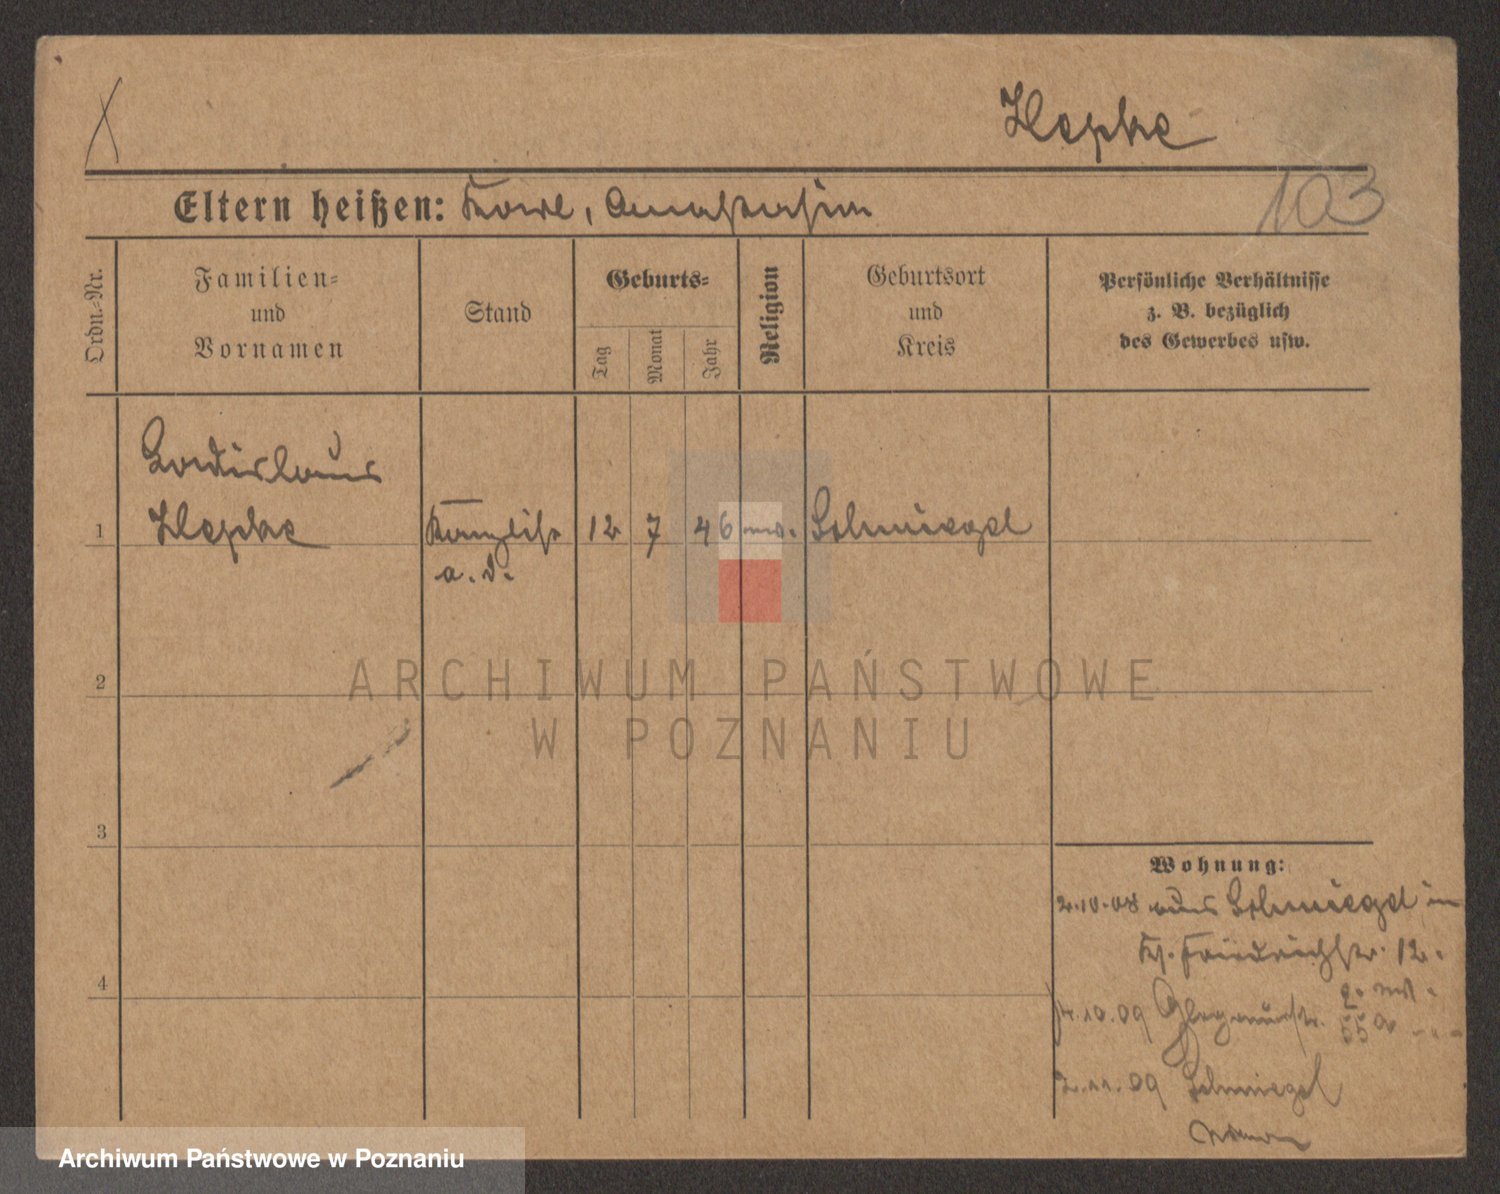 Hepke
103
Eltern heißen: Karl,
Ordn.-Nr.
Familien-
und
Vornamen
Stand
Geburts-
Tag
Monat
Jahr
Religion
Geburtsort
und
Kreis
Persönliche Verhältnisse
z. B. bezüglich
des Gewerbes usw.
1
Ladislaus
Hepke
Kanzlist
a. D.
12 7 46
Schmiegel
2
3
4
Wohnung:
2.10.08 aus Schmiegel in
Friedrichstr. 12.
10.09 Glogauerstr.
2.11.09 Schmiegel
ARCHIWUM PAŃSTWOWE
W POZNANIU
Archiwum Państwowe w Poznaniu